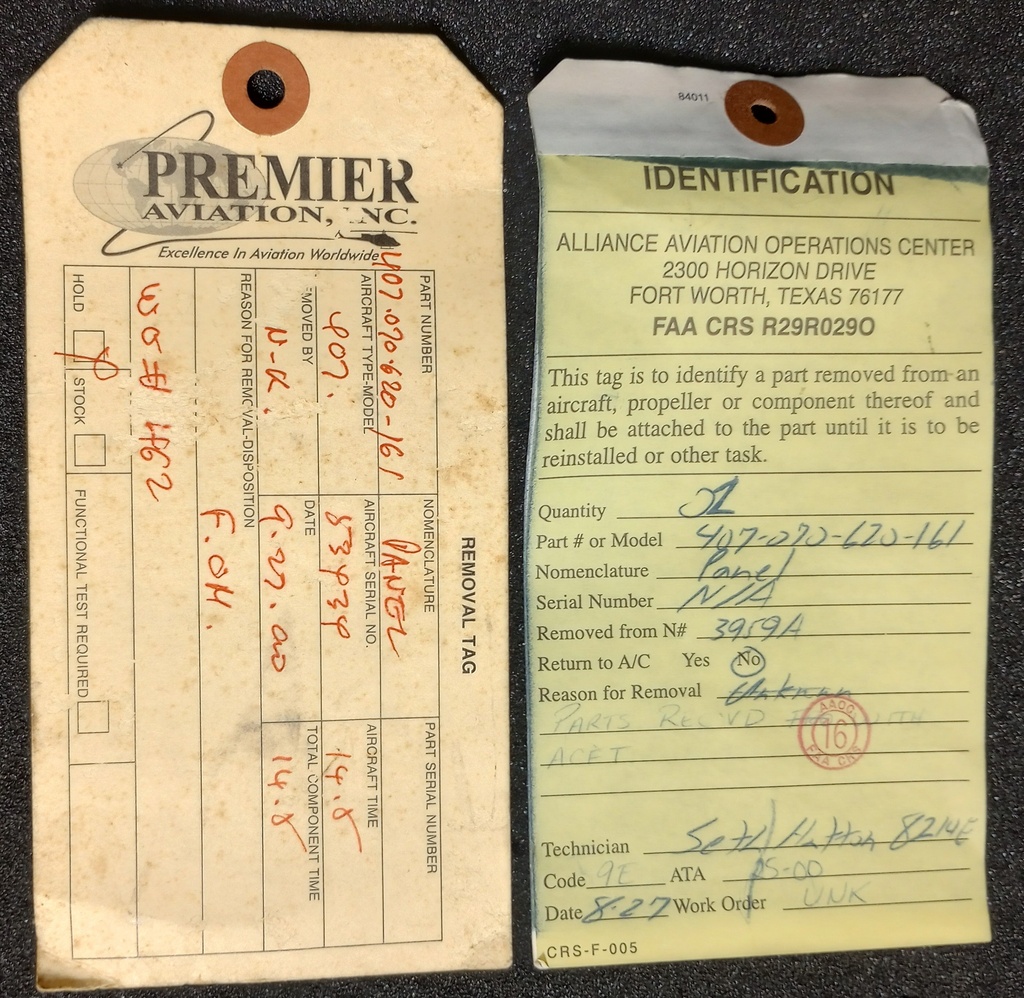 PREMIER
AVIATION, INC.
Excellence In Aviation Worldwide
REMOVAL TAG
PART NUMBER
407.070.620-161
NOMENCLATURE
PANEL
PART SERIAL NUMBER
AIRCRAFT TYPE-MODEL
407.
AIRCRAFT SERIAL NO.
53434
AIRCRAFT TIME
14.5
MOVED BY
N-K.
DATE
9.27.00
TOTAL COMPONENT TIME
14.5
REASON FOR REMOVAL-DISPOSITION
F.OH.
WO# 462
HOLD
STOCK
FUNCTIONAL TEST REQUIRED
84011
IDENTIFICATION
ALLIANCE AVIATION OPERATIONS CENTER
2300 HORIZON DRIVE
FORT WORTH, TEXAS 76177
FAA CRS R29R029O
This tag is to identify a part removed from an
aircraft, propeller or component thereof and
shall be attached to the part until it is to be
reinstalled or other task.
Quantity 01
Part # or Model 407-070-620-161
Nomenclature Panel
Serial Number N/A
Removed from N# 3959A
Return to A/C Yes No
Reason for Removal Unknown
PARTS RECVD WITH
ACFT
AAOC
16
FAA CRS
Technician Seth Hutton 8214E
Code 9E ATA 05-00
Date 8-27 Work Order UNK
CRS-F-005